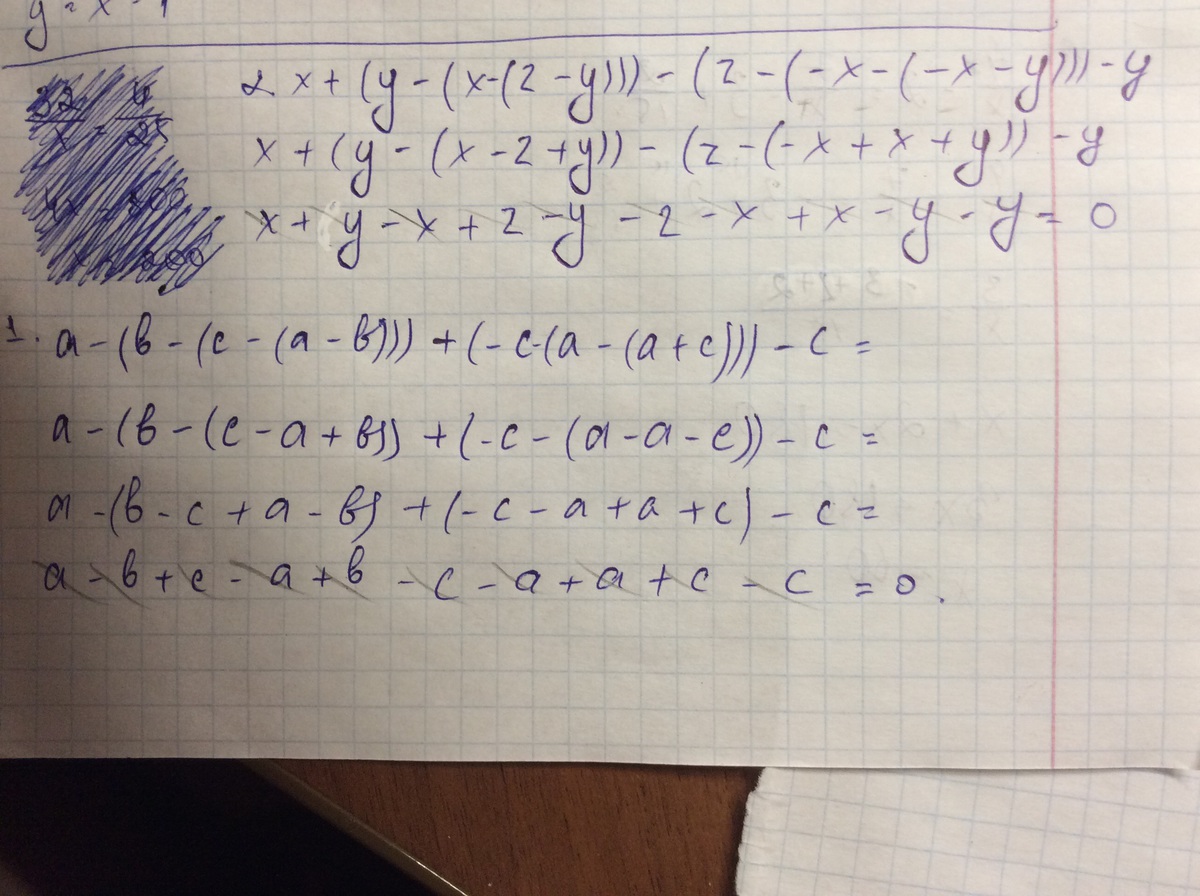 y = x - 1
2 x + (y - (x - (2 - y))) - (2 - (-x - (-x - y))) - y
x + (y - (x - 2 + y)) - (2 - (-x + x + y)) - y
x + y - x + 2 - y - 2 - x + x - y - y = 0
1. a - (в - (c - (a - в))) + (-c-(a - (a + c))) - c =
a - (в - (c - a + в)) + (-c - (a - a - c)) - c =
a - (в - c + a - в) + (-c - a + a + c) - c =
a - в + c - a + в - c - a + a + c - c = 0.